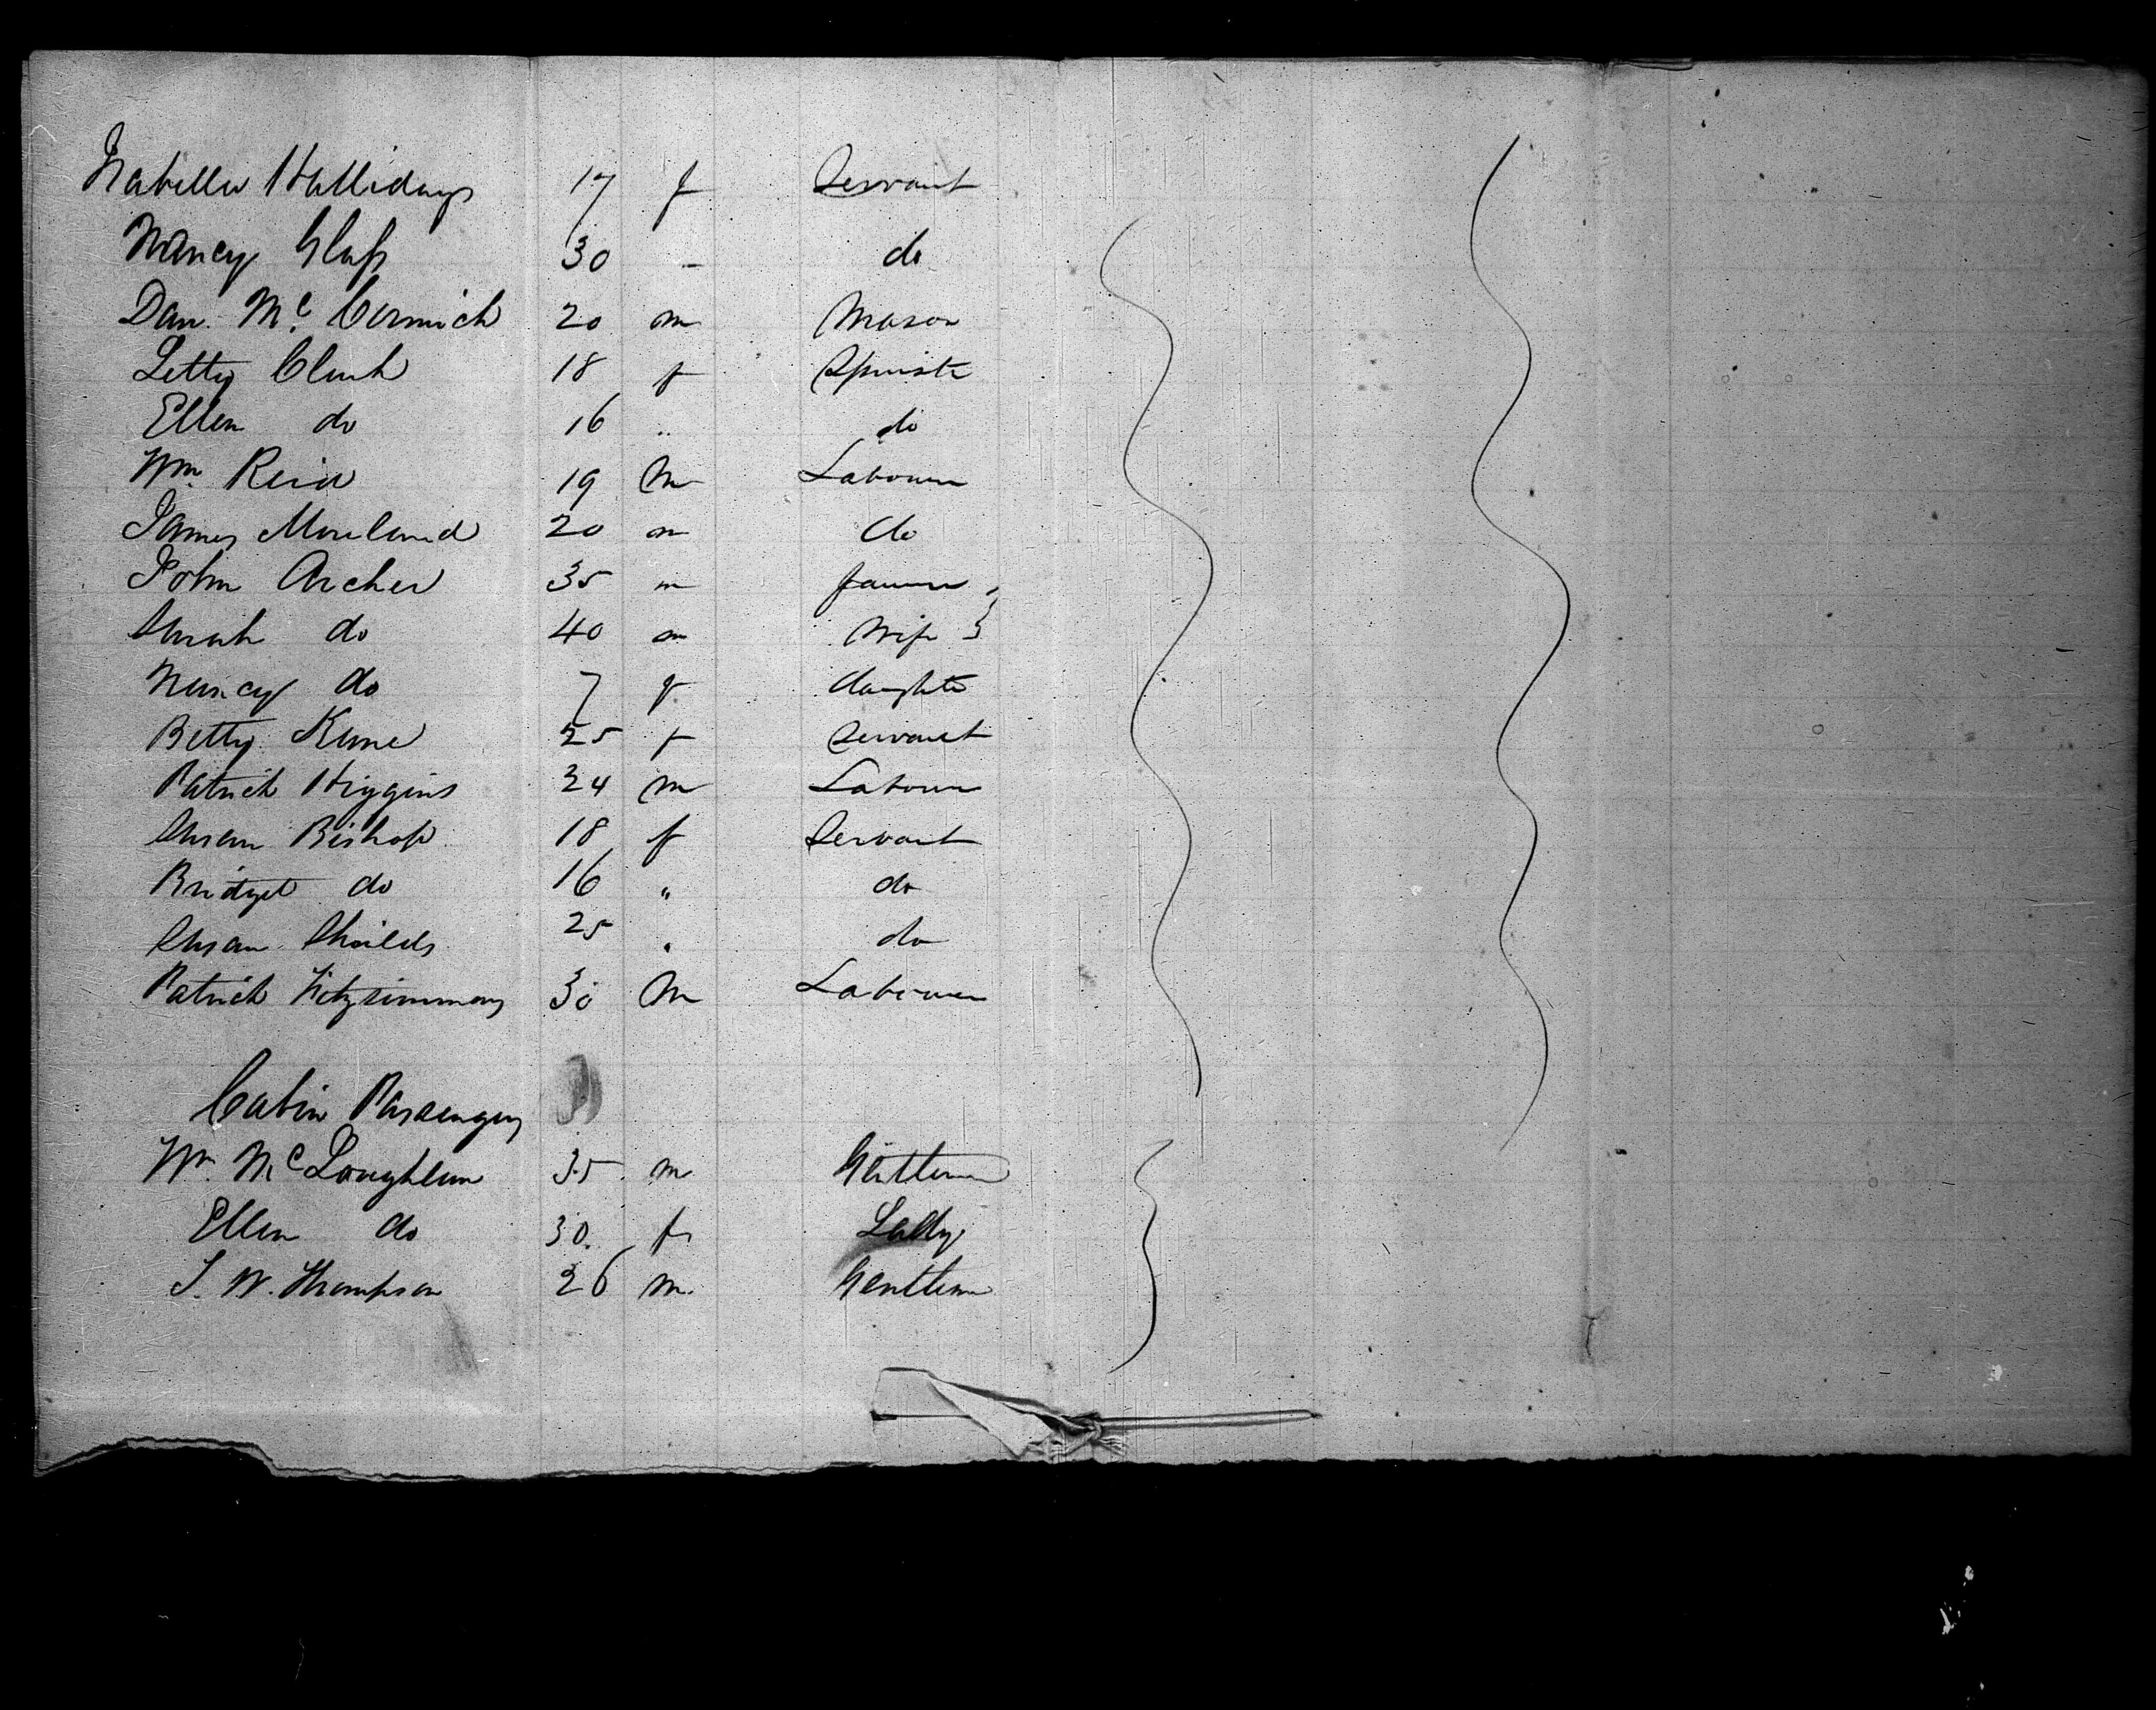 Isabella Hallidays 17 f Servant
Nancy Glass 30 – do
Dan. Mc. Cormick 20 m Mason
Letty Clark 18 f Spinste
Ellen do 16 " do
Wm. Reid 19 M Labourer
James Moreland 20 m do
John Archer 35 m farmer
Sarah do 40 m Wife
Nancy do 7 f daughte
Betty Kane 25 f Servant
Patrick Higgins 24 m Labourer
Susan Bishop 18 f Servant
Bridget do 16 " do
Susan Shields 25 " do
Patrick Fitzsimmons 30 M Labourer
Cabin Passengers
Wm. McLoughlin 35 m Gentleman
Ellen do 30. f Lady
J. W. Thompson 26 m. Gentlem